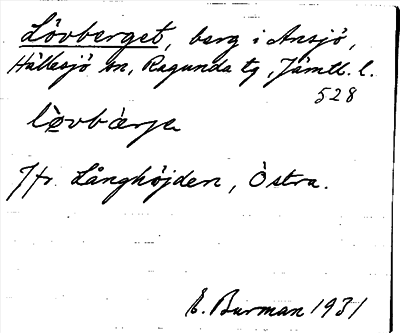 Lövberget, berg i Ansjö,
Hällesjö sn, Ragunda tg, Jämtl. l.
528
Jfr. Långhöjden, Östra.
E. Burman 1931